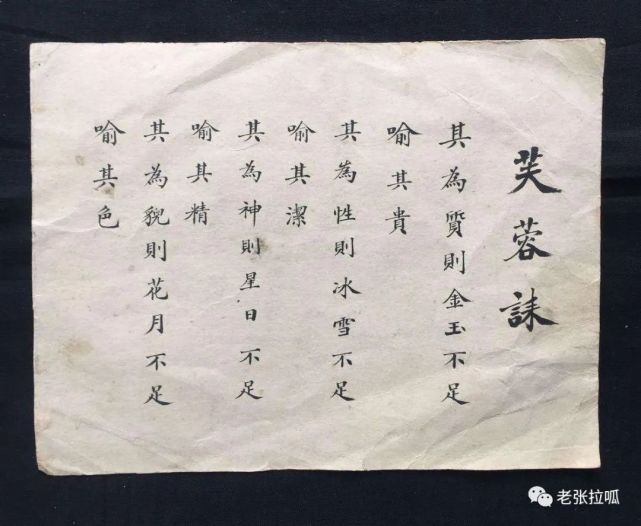 芙蓉誄
其為質則金玉不足
喻其貴
其為性則冰雪不足
喻其潔
其為神則星日不足
喻其精
其為貌則花月不足
喻其色
老张拉呱